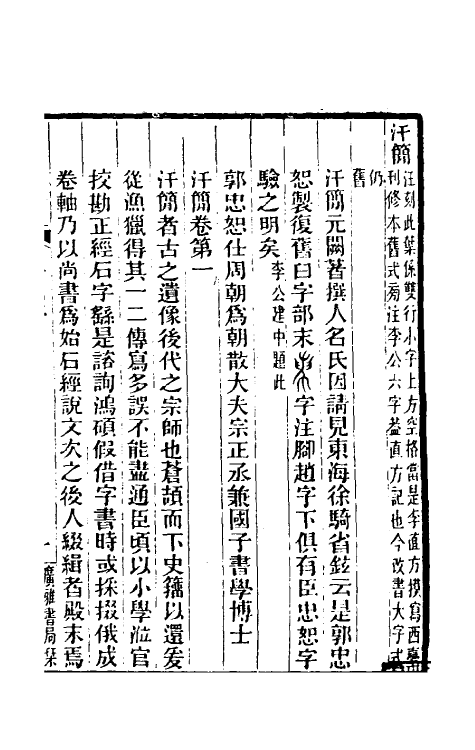 汗簡
汪刻此葉係雙行小字上方空格當是李直方摸寫西臺
刋修本舊式旁注李公六字葢直方記也今改書大字式
仍
舊
汗簡元闕著撰人名氏因請見東海徐騎省鉉云是郭忠
恕製復舊臼字部末字注腳趙字下俱有臣忠恕字
驗之明矣李公建中題此
郭忠恕仕周朝爲朝散大夫宗正丞兼國子書學博士
汗簡卷第一
汗簡者古之遺像後代之宗師也蒼頡而下史籒以還爰
從漁獵得其一二傳寫多誤不能盡通臣頃以小學涖官
挍勘正經石字繇是諮詢鴻碩假借字書時或採掇俄成
卷軸乃以尚書爲始石經說文次之後人綴緝者殿末焉
一
廣雅書局栞